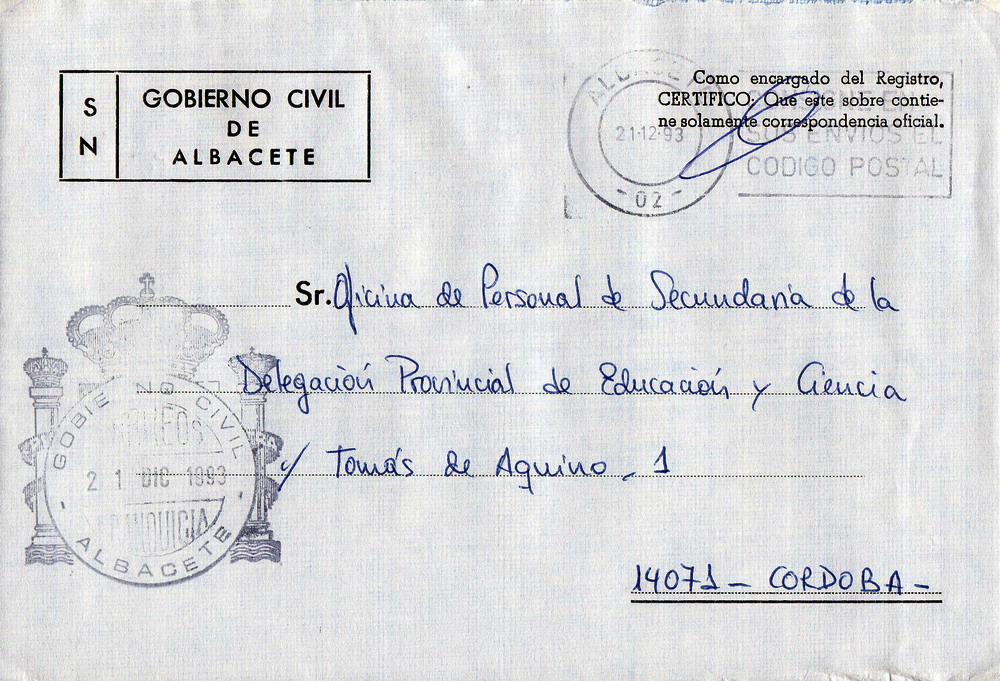 S N
GOBIERNO CIVIL
DE
ALBACETE
Como encargado del Registro,
CERTIFICO: Que este sobre contie-
ne solamente correspondencia oficial.
21-12-93
- 02 -
CONSIGNE EN
SUS ENVIOS EL
CODIGO POSTAL
Sr. Oficina de Personal de Secundaria de la
Delegación Provincial de Educación y Ciencia
c/ Tomás de Aquino - 1
14071 - CORDOBA -
GOBIERNO CIVIL
CORREOS
21 DIC 1993
FRANQUICIA
ALBACETE